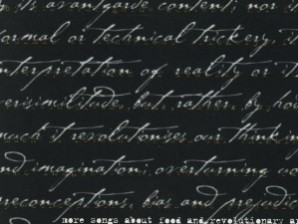 its avantgarde content; nor i
ormal or technical trickery, i
nterpretation of reality or it
erisimilitude, but, rather, by ho
much it revolutionises our think in
nd imagination; overturning ou
reconceptions, bias and prejudic
more songs about food and revolutionary ar